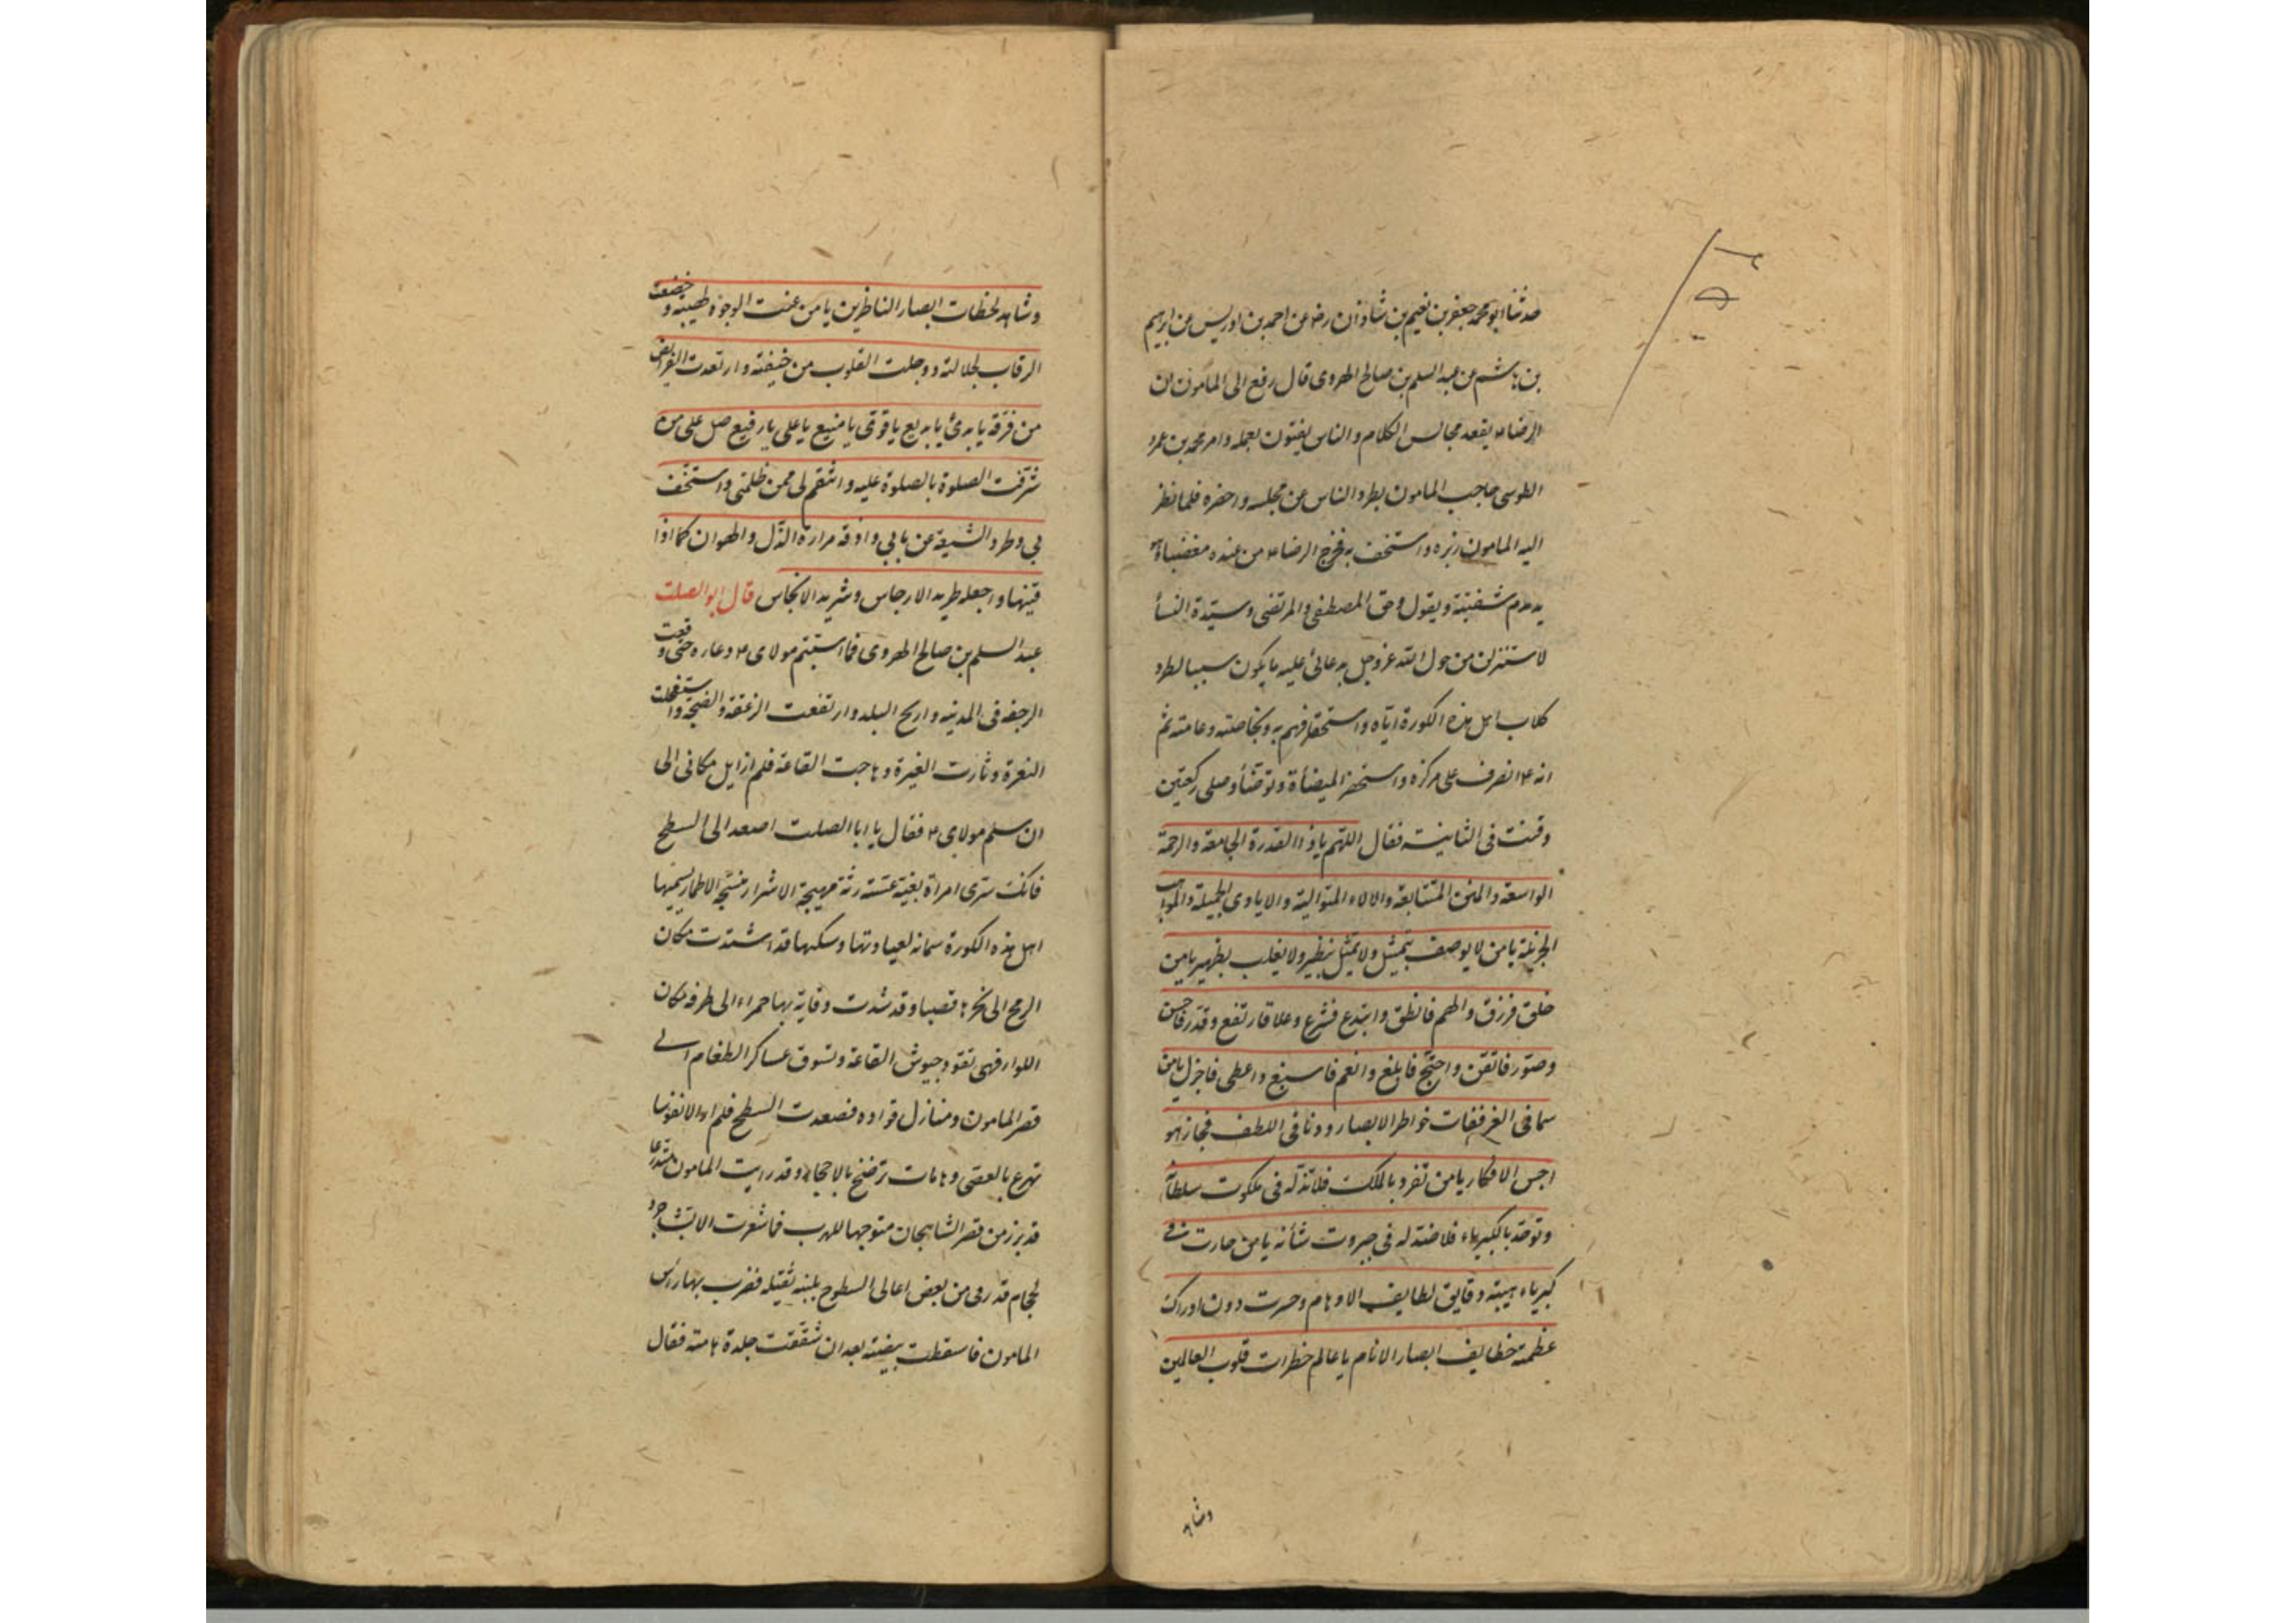 حدثنا ابو محمد جعفر بن نعیم بن شاذان رضه عن احمد بن ادریس عن ابرهیم
بن هاشم عن عبد السلم بن صالح الهروی قال رفع الی المامون ان
الرضا ع یقعد مجالس الکلام و الناس یفتنون بعلمه و امر محمد بن عمرو
الطوسی حاجب المامون بطرد الناس عن مجلسه و احضره فلما نظر
الیه المامون زبره و استخف به فخرج الرضا ع من عنده مغضبا و هو
یدمدم شفتیه و یقول و حق المصطفی و المرتضی و سیّدة النسآ
لاستنزلن من حول الله عز و جل بدعائی علیه ما یکون سببا لطرد
کلاب اهل هذه الکورة ایّاه و استخفافهم به و بخاصته و عامته ثم
انه ع انصرف علی مرکزه و استحضر المیضأة و توضّأ و صلی رکعتین
و قنت فی الثانیه فقال اللهّم یا ذا القدرة الجامعة و الرحمة
الواسعة و المنن المتتابعة و الالاء المتوالیة و الایادی الجمیلة و المواهب
الجزیلة یا من لا یوصف بتمثیل و لا یمثّل بنظیر و لا یغلب بظهیر یا من
خلق فرزق و الهم فانطق و ابتدع فشرع و علا فارتفع و قدّر فاحسن
و صوّر فاتقن و احتجّ فابلغ و انعم فاسبغ و اعطی فاجزل یا من
سما فی العز ففات خواطر الابصار و دنا فی اللطف فجاز هو
اجس الافکار یا من تفرد بالملک فلا ندّ له فی ملکوت سلطانه
و توحّد بالکبریاء فلا ضدّ له فی جبروت شأنه یا من حارت فی
کبریاء هیبته دقایق لطایف الاوهام و حسرت دون ادراک
عظمته خطایف ابصار الانام یا عالم خطرات قلوب العالمین
و شاهد
و شاهد لحظات ابصار الناظرین یا من عنت الوجوه لهیبته و خضعت
الرقاب لجلالته و وجلت القلوب من خیفته و ارتعدت الفرایص
من فرقه یا بدیٔ یا بدیع یا قوّی یا منیع یا علی یا رفیع صل علی من
شرّفت الصلوة بالصلوة علیه و انتقم لی ممن ظلمنی و استخف
بی و طرد الشیعة عن بابی و اذقه مرارة الذّل و الهوان کما اذا
قنیها و اجعله طرید الارجاس و شرید الانجاس قال ابو الصلت
عبد السلم بن صالح الهروی فما استتم مولای ع دعاره حتی وقعت
الرجفه فی المدینه و ارتج البلد و ارتفعت الزعقة و الضجة و استفحلت
النعرة و ثارت الغبرة و هاجت القاعة فلم ازایل مکانی الی
ان سلم مولای ع فقال یا ابا الصلت اصعد الی السطح
فانک ستری امراة بغیة عثة رثة مهیجة الاشرار متسخة الاطمار یسمیها
اهل هذه الکورة سمانه لغباوتها و تهتکها قد اسندت مکان
الرمح الی نحرها قصبا و قد شدت وقایة بها حمراء الی طرفه مکان
اللواء فهی تقود جیوش القاعة و تسوق عساکر الطغام الی
قصر المامون و منازل قواده فصعدت السطح فلم ار الا نفوسا
تهرع بالعصی و هامات ترضخ بالاحجار و قد رایت المامون متدرعا
قد برز من قصر الشاهجان متوجها للهرب فما شعرت الا بشاجرد
الحجام قد رمی من بعض اعالی السطوح بلبنه ثقیله فضرب بها راس
المامون فاسقطت بیضته بعد ان شققت جلدة هامته فقال